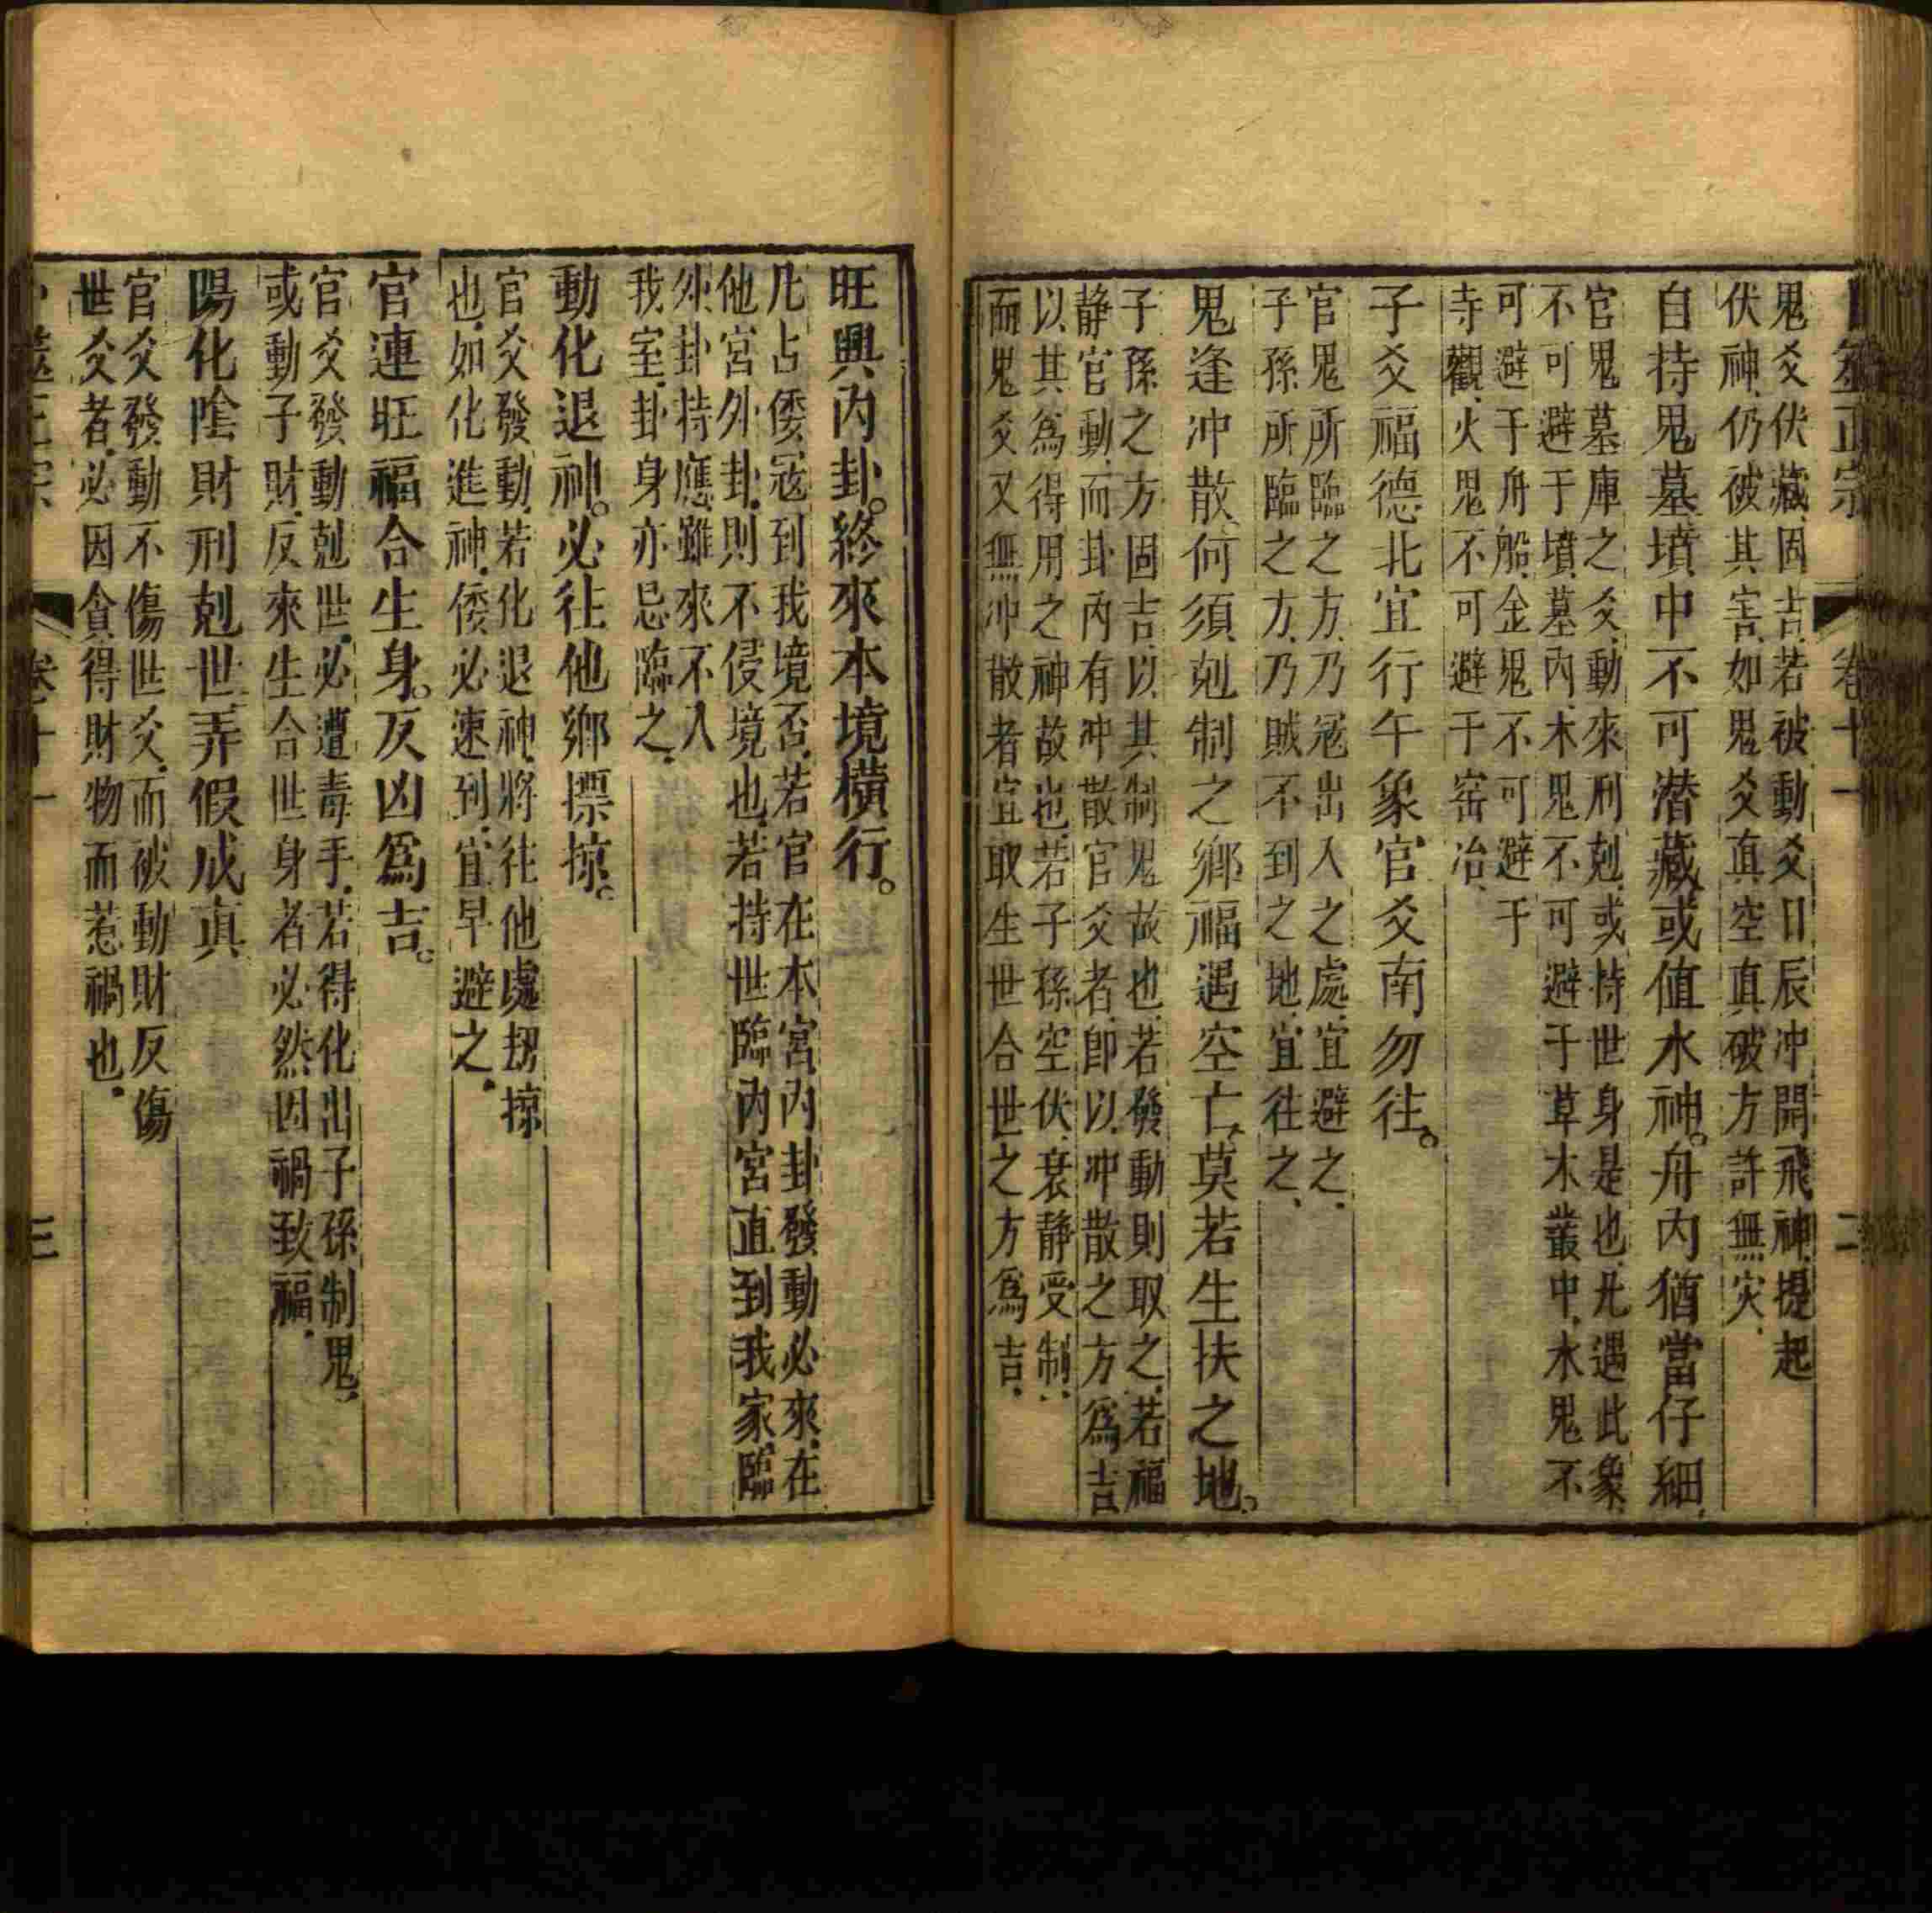 卜筮正宗　卷十一　二
鬼爻伏藏、固吉、若被動爻日辰冲開飛神、提起
伏神、仍被其害、如鬼爻真空真破方許無灾、
自持鬼墓墳中不可潜藏、或值水神。舟內猶當仔細、
官鬼墓庫之爻、動來刑剋、或持世身是也、凡遇此象、
不可避于墳墓內、木鬼不可避于草木叢中、水鬼不
可避于舟船、金鬼不可避于
寺觀、火鬼不可避于窑冶、
子爻福德北宜行午象官爻南勿往。
官鬼所臨之方、乃寇出入之處、宜避之、
子孫所臨之方、乃賊不到之地、宜往之、
鬼逢冲散、何須剋制之鄉福遇空亡、莫若生扶之地。
子孫之方固吉、以其制鬼故也、若發動則取之、若福
静、官動、而卦內有冲散官爻者、即以冲散之方、爲吉、
以其爲得用之神故也、若子孫空伏、衰静受制、
而鬼爻又無冲散者、宜取生世合世之方爲吉、
旺興內卦。終來本境橫行。
凡占倭寇到我境否、若官在本宮內卦發動必來、在
他宮外卦、則不侵境也、若持世臨內宮直到我家、臨
外卦持應、雖來不入
我室、卦身亦忌臨之、
動化退神。必往他鄉摽掠。
官爻發動、若化退神、將往他處刼掠
也、如化進神、倭必速到、宜早避之、
官連旺福合生身。反凶爲吉。
官爻發動剋世、必遭毒手、若得化出子孫制鬼、
或動子財、反來生合世身者、必然因禍致福、
陽化陰財刑剋世、弄假成真
官爻發動不傷世爻、而被動財反傷
世爻者、必因貪得財物而惹禍也、
卜筮正宗　卷十一　三